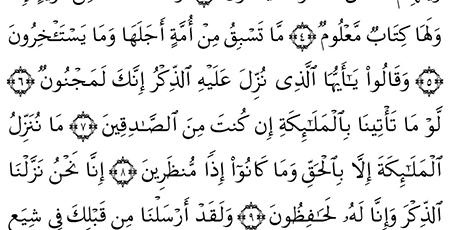 وَلَهَا كِتَابٞ مَّعۡلُومٞ ﴿٤﴾ مَّا تَسۡبِقُ مِنۡ أُمَّةٍ أَجَلَهَا وَمَا يَسۡتَـٔۡخِرُونَ
﴿٥﴾ وَقَالُواْ يَـٰٓأَيُّهَا ٱلَّذِي نُزِّلَ عَلَيۡهِ ٱلذِّكۡرُ إِنَّكَ لَمَجۡنُونٞ ﴿٦﴾
لَّوۡ مَا تَأۡتِينَا بِٱلۡمَلَـٰٓئِكَةِ إِن كُنتَ مِنَ ٱلصَّـٰدِقِينَ ﴿٧﴾ مَا نُنَزِّلُ
ٱلۡمَلَـٰٓئِكَةَ إِلَّا بِٱلۡحَقِّ وَمَا كَانُوٓاْ إِذٗا مُّنظَرِينَ ﴿٨﴾ إِنَّا نَحۡنُ نَزَّلۡنَا
ٱلذِّكۡرَ وَإِنَّا لَهُۥ لَحَـٰفِظُونَ ﴿٩﴾ وَلَقَدۡ أَرۡسَلۡنَا مِن قَبۡلِكَ فِي شِيَعِ